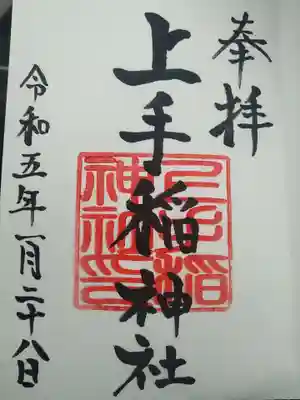 奉拝
上手稲神社
上手稲
神社印
令和五年一月二十八日